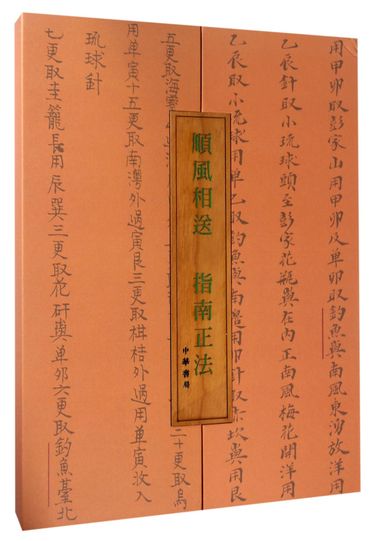 用甲卯取彭家山用甲卯及单卯取釣魚嶼南風東湧放洋用
乙辰針取小琉球頭至彭家花瓶嶼在內正南風梅花開洋用
乙辰取小琉球用单乙取釣魚嶼南用卯針取赤坎嶼用艮
順風相送 指南正法
中華書局
二十更取烏
五更取海
用单寅十五更取南灣外過寅艮三更取柑桔外過用单寅收入
琉球針
七更取圭籠長用辰巽三更取花矸嶼单卯六更取釣魚臺北